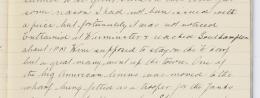 some reason I had not been issued with
a pice, but fortunately it was not noticed
Entrained at Warminster & reached Southampton
about 1 PM. Were supposed to stay on the Wharf
but a great many went up the town. One of
the big American liners was moored to the
wharf being fitted as a hosp for the Yanks